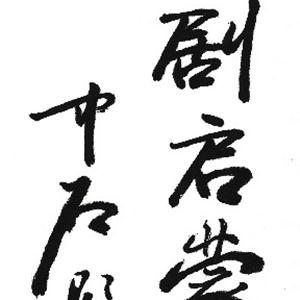 剧启蒙
中石